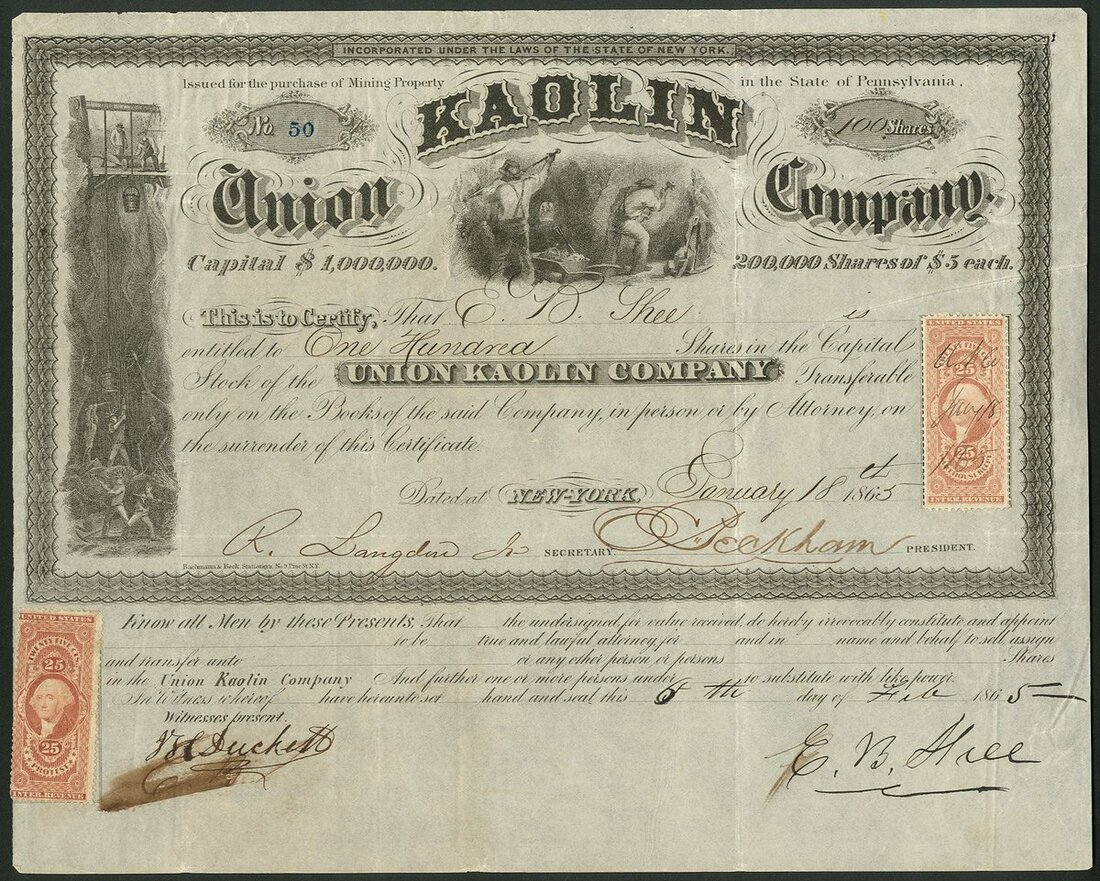 INCORPORATED UNDER THE LAWS OF THE STATE OF NEW YORK.
Issued for the purchase of Mining Property in the State of Pennsylvania.
No 50
100 Shares
Union KAOLIN Company.
Capital $ 1,000,000. 200,000 Shares of $5 each.
This is to Certify, That E. B. Shee is
entitled to One Hundred Shares in the Capital
Stock of the UNION KAOLIN COMPANY Transferable
only on the Books of the said Company, in person or by Attorney, on
the surrender of this Certificate.
Dated at NEW-YORK, January 18th 1865
R. Langdon Jr SECRETARY. Peckham PRESIDENT.
Bachmann & Beck, Stationers, No 9 Pine St N.Y.
UNITED STATES
25
25
INTER. REVENUE
Know all Men by these Presents, That the undersigned for value received, do hereby irrevocably constitute and appoint
to be true and lawful attorney for and in name and behalf to sell, assign
and transfer unto or any other person or persons Shares
in the Union Kaolin Company And further one or more persons under to substitute with like power.
In Witness whereof have hereunto set hand and seal this 6th day of Feb 1865
Witnesses present.
Duckett
E. B. Shee
UNITED STATES
TWENTY FIVE CTS.
25
25
PROTEST
INTER. REVENUE